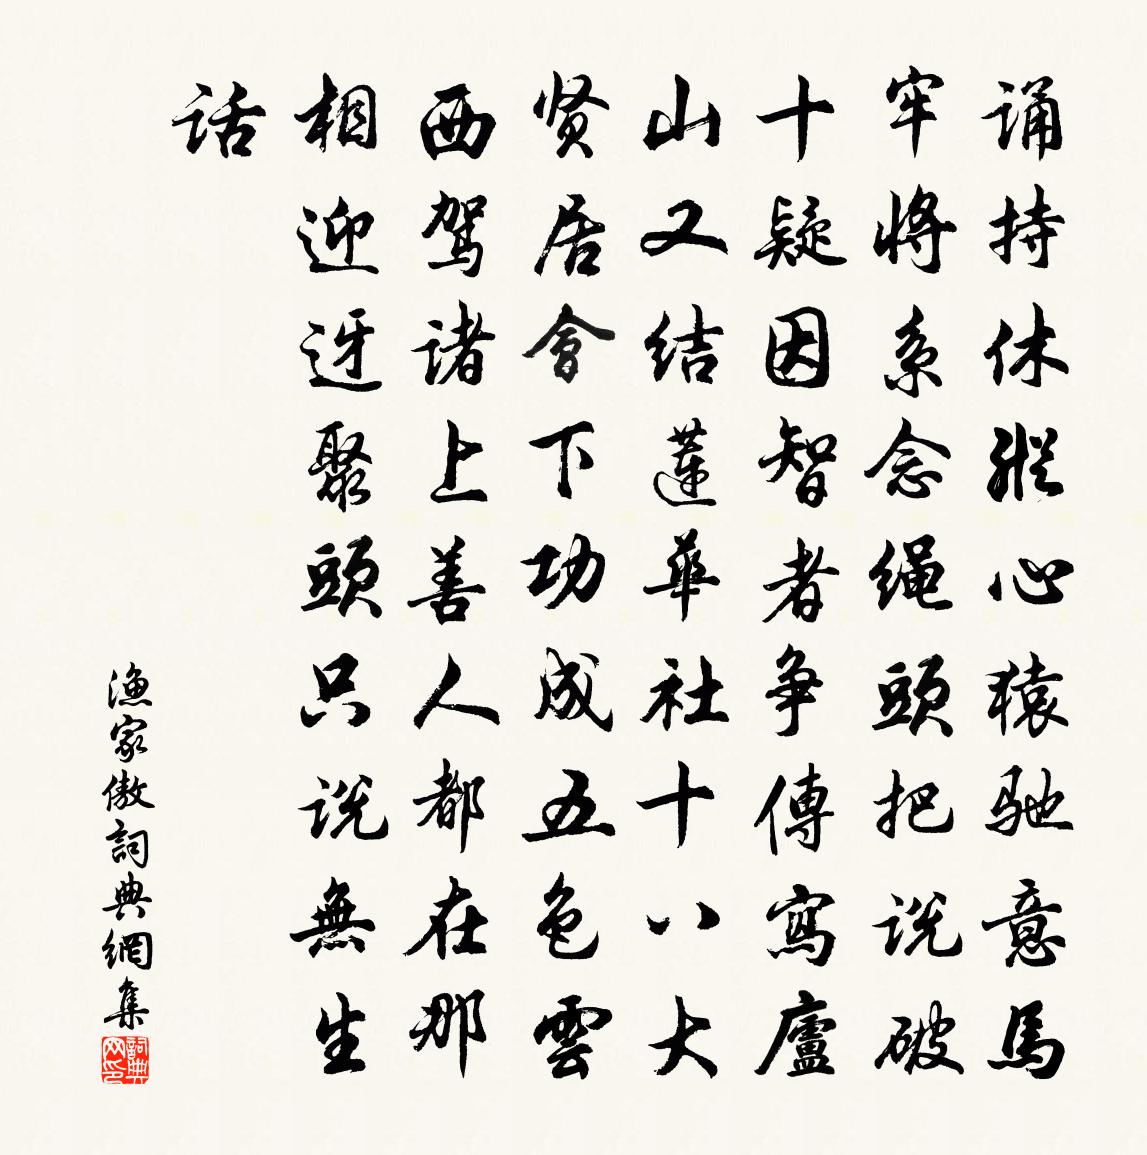 诵持休縱心猿驰意馬
牢將系念绳頭把说破
十疑因智者争傳寫廬
山又结蓮華社十八大
贤居會下功成五色雲
西駕诸上善人都在那
相迎迓聚頭只说無生
话
漁家傲詞典網集
詞典网印